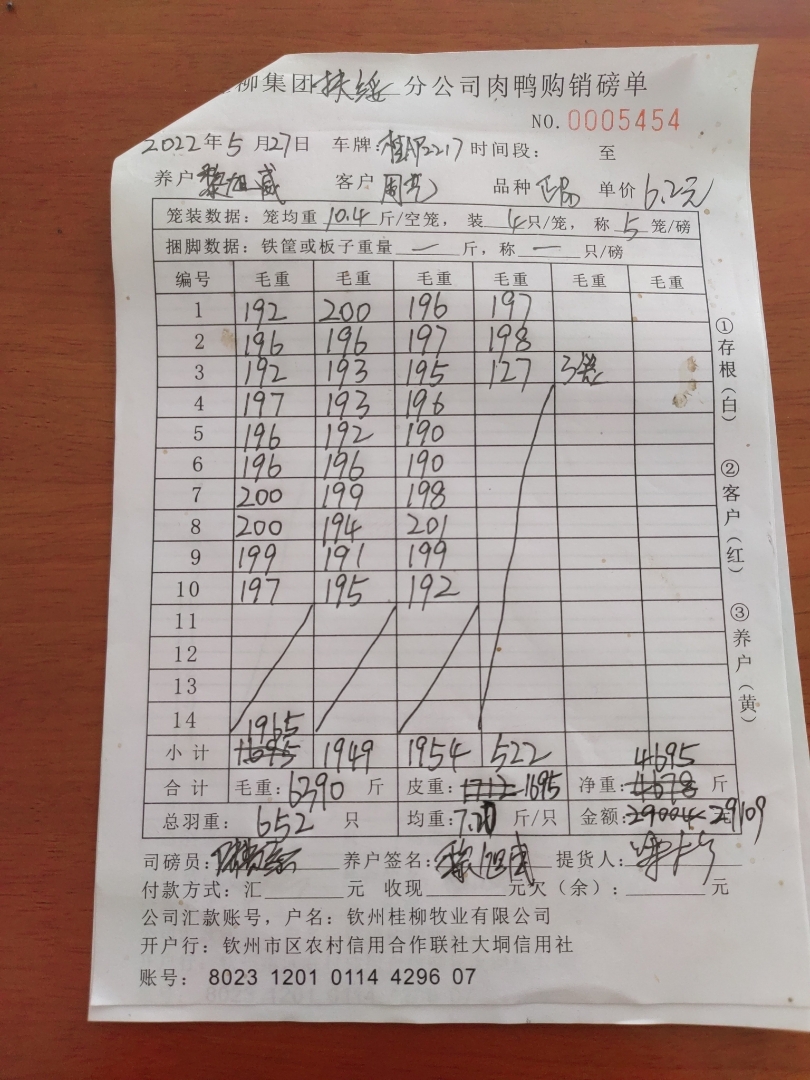 柳集团扶绥分公司肉鸭购销磅单
NO.0005454
2022年5月27日 车牌: 2217 时间段: 至
养户 黎旭威 客户 周 品种 单价 6.2元
笼装数据: 笼均重 10.4 斤/空笼, 装 4 只/笼, 称 5 笼/磅
捆脚数据: 铁筐或板子重量 — 斤, 称 — 只/磅
编号 毛重 毛重 毛重 毛重 毛重 毛重
1 192 200 196 197
2 196 196 197 198
3 192 193 195 127 3笼
4 197 193 196
5 196 192 190
6 196 196 190
7 200 199 198
8 200 194 201
9 199 191 199
10 197 195 192
11
12
13
14
小计 1965 1949 1954 522
合计 毛重: 6390 斤 皮重: 1712 1695 净重: 4678 4695 斤
总羽重: 652 只 均重: 7.20 斤/只 金额: 29004 29109
司磅员: 养户签名: 提货人:
付款方式: 汇 元 收现 元欠(余): 元
公司汇款账号, 户名: 钦州桂柳牧业有限公司
开户行: 钦州市区农村信用合作联社大垌信用社
账号: 8023 1201 0114 4296 07
①存根(白)
②客户(红)
③养户(黄)